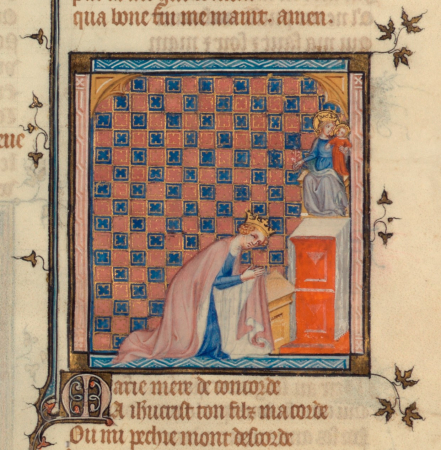 qua bone fin me maint. amen.
Marie mere de concorde
A ihucrist ton filz macorde
Ou mi pechie mont descorde